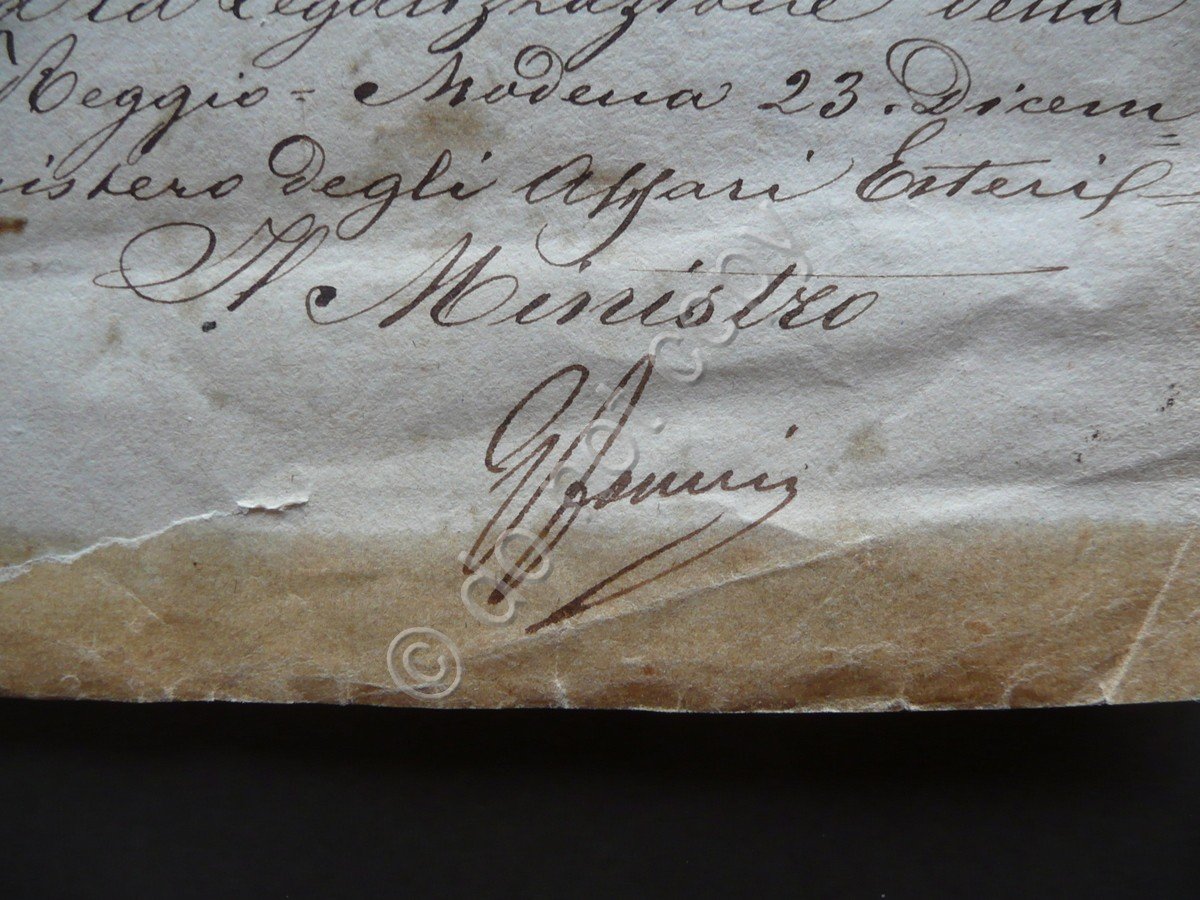 la Legalizzazione della
Reggio = Modena 23. Dicem=
nistero degli Affari Esteri =
Il Ministro